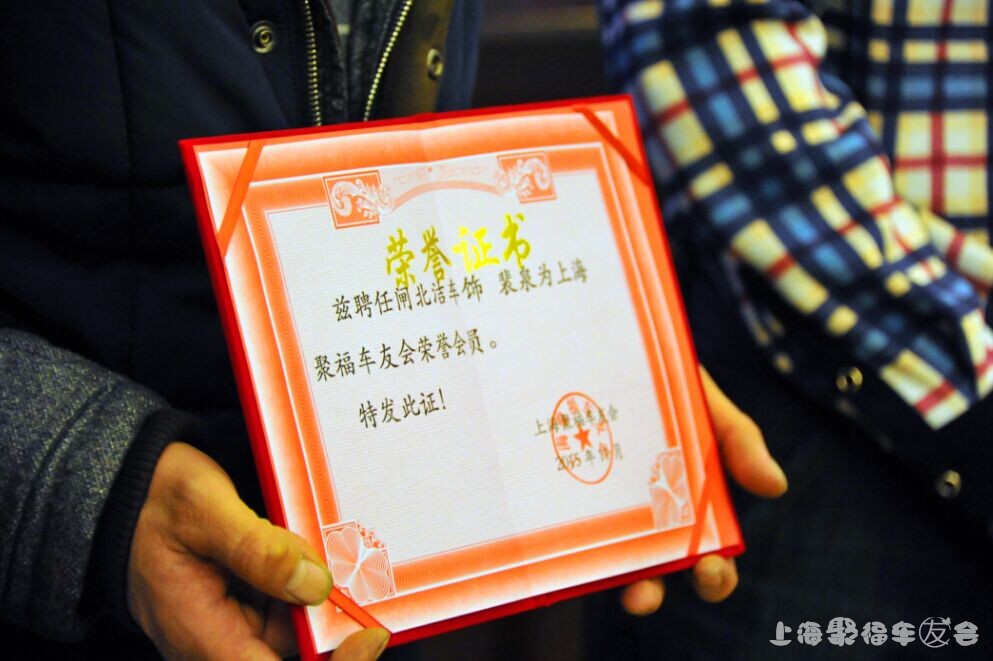 荣誉证书
兹聘任闸北洁车饰 裴泉为上海
聚福车友会荣誉会员。
特发此证!
上海聚福车友会
上海聚福车友会